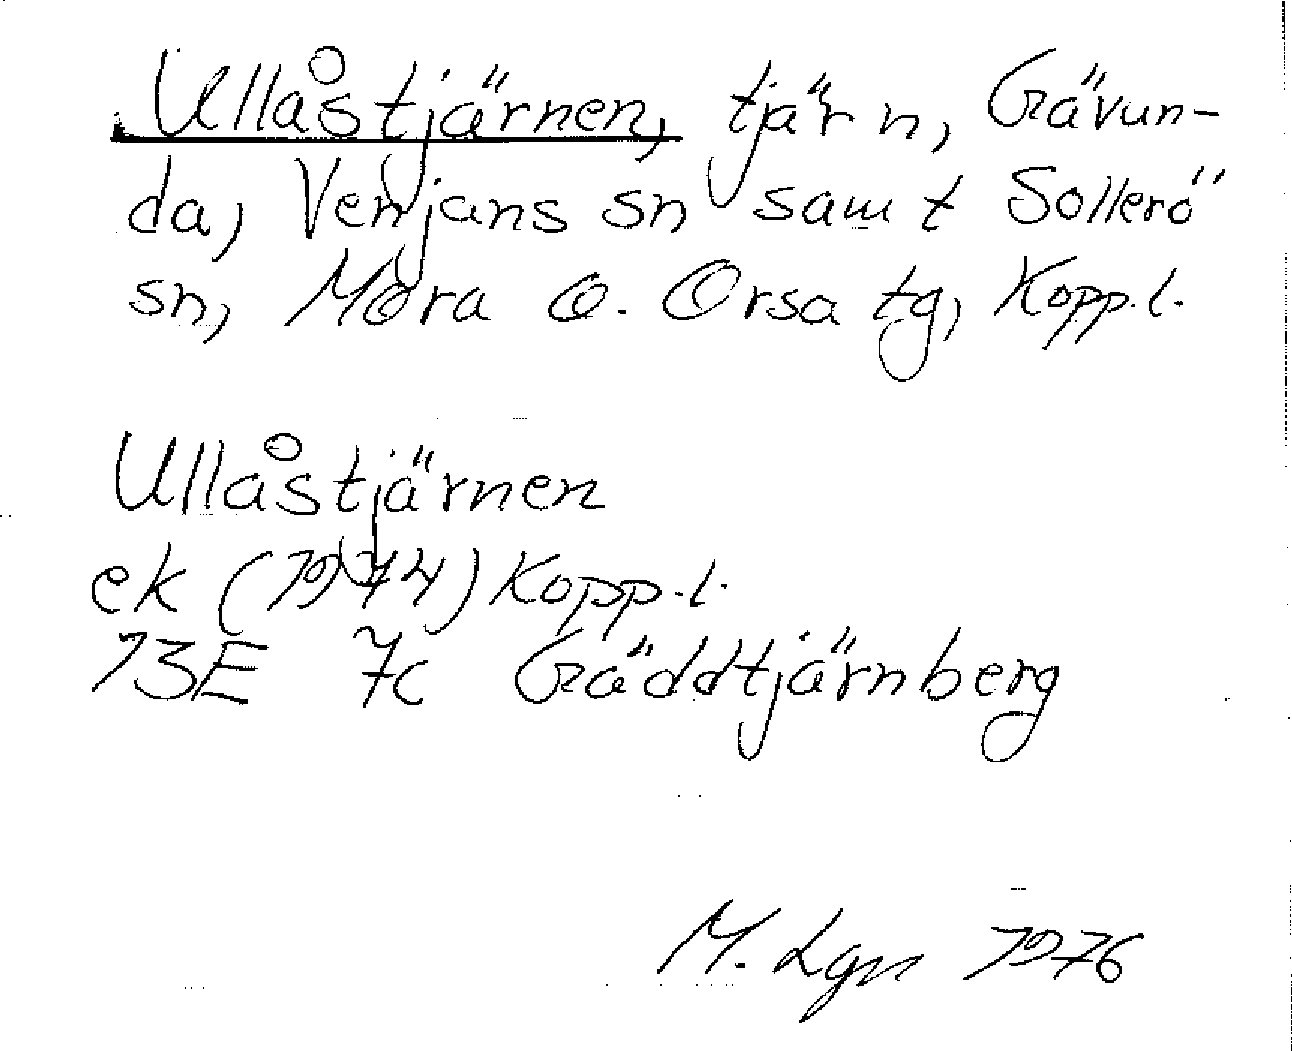 Ullåstjärnen, tjärn, Gävun-
da, Venjans sn samt Sollerö
sn, Mora o. Orsa tg, Kopp. l.
Ullåstjärnen
ek (1974) Kopp. l.
13E 7c Gäddtjärnberg
M. Lgn 1976